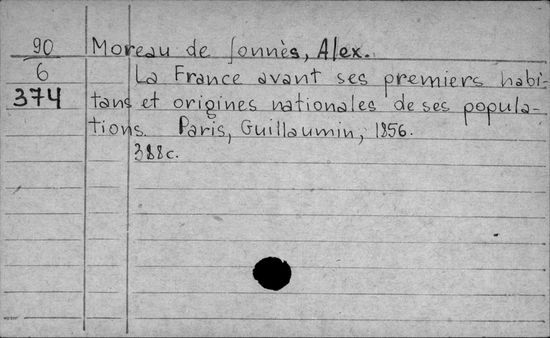 90 Moreau de Jonnès, Alex.
6 La France avant ses premiers habi-
374 tans et origines nationales de ses popula-
tions. Paris, Guillaumin, 1856.
388c.